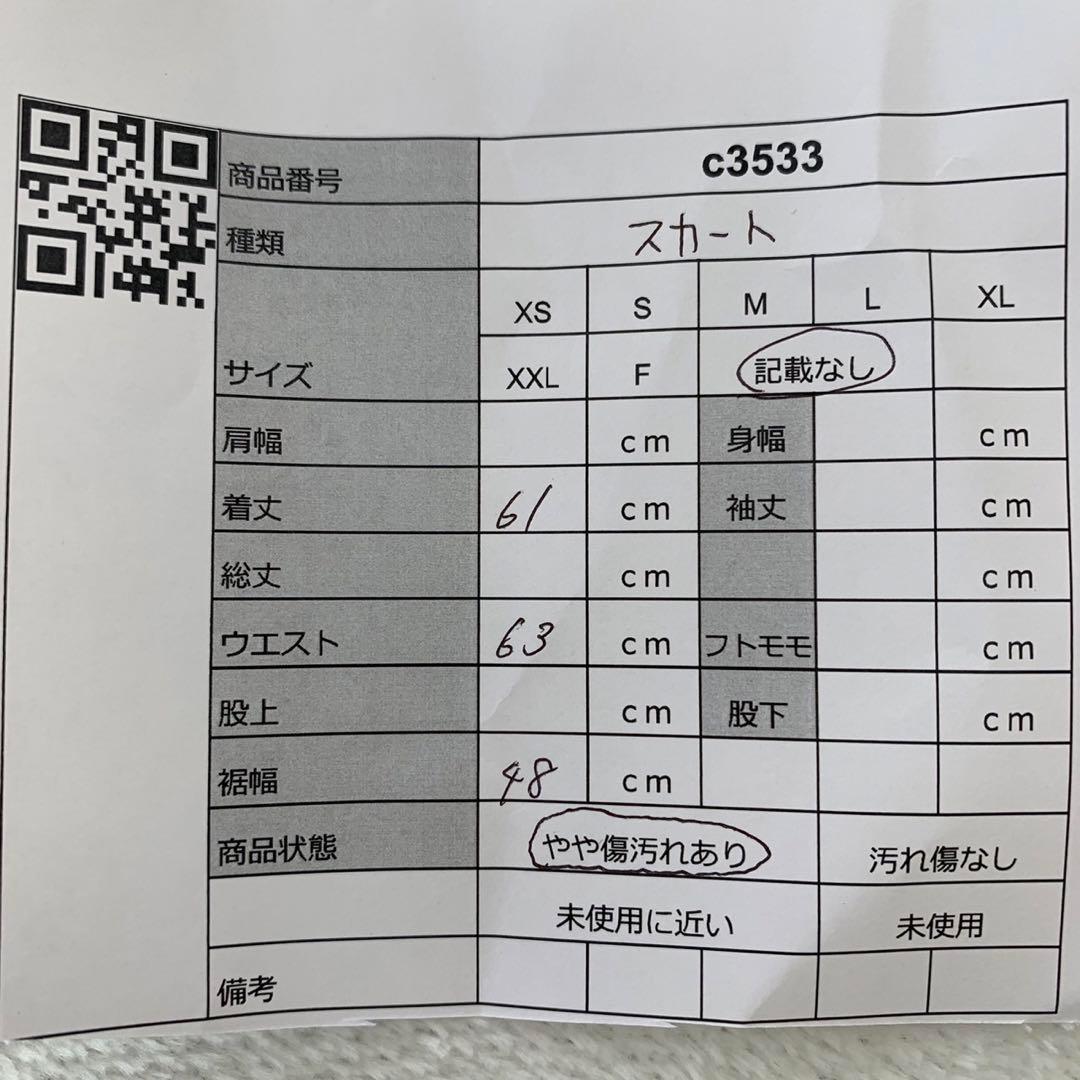 商品番号 c3533
種類 スカート
XS S M L XL
サイズ XXL F 記載なし
肩幅 cm 身幅 cm
着丈 61 cm 袖丈 cm
総丈 cm cm
ウエスト 63 cm フトモモ cm
股上 cm 股下 cm
裾幅 48 cm
商品状態 やや傷汚れあり 汚れ傷なし
未使用に近い 未使用
備考